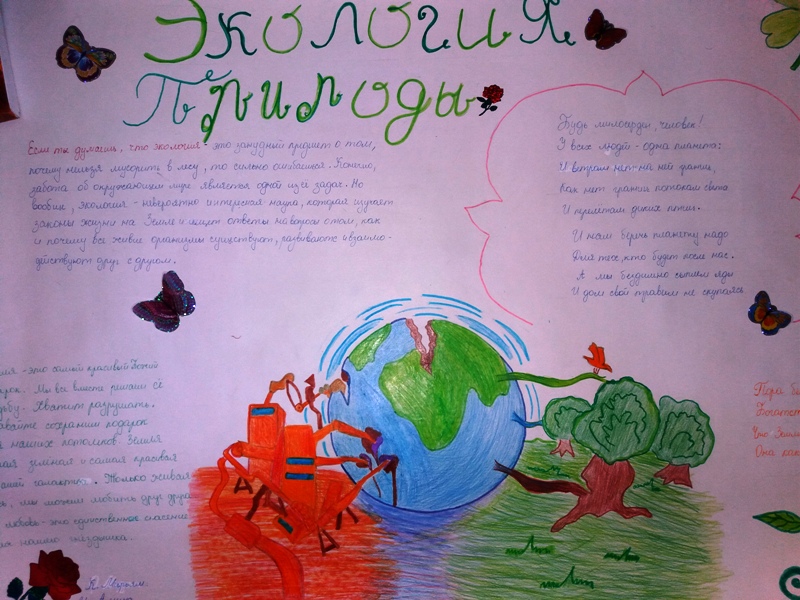 Экология
Природы
Если ты думаешь, что экология - это занудный предмет о том,
почему нельзя мусорить в лесу, то сильно ошибаешся. Конечно,
забота об окружающем мире является одной из её задач. Но
вообще, экология - невероятно интересная наука, которая изучает
законы жизни на Земле и ищет ответы на вопросы о том, как
и почему все живые организмы существуют, развиваются и взаимо-
действуют друг с другом.
Будь милосерден, человек!
У всех людей - одна планета:
И ветрам нет на ней границ,
Как нет границ потокам света
И перелётам диких птиц.
И нам беречь планету надо
Для тех, кто будет после нас.
А мы бездушно сыплем яды
И дом свой травим не скупаясь
- это самый красивый Божий
Мы все вместе решаем её
Хватит разрушать.
сохраним подарок
наших потомков. Земля
зелёная и самая красивая
галактики. Только живая
мы можем любить друг друга
любовь - это единственное спасение
нашего
Пора бы
Богатст
Что Земля
Она как